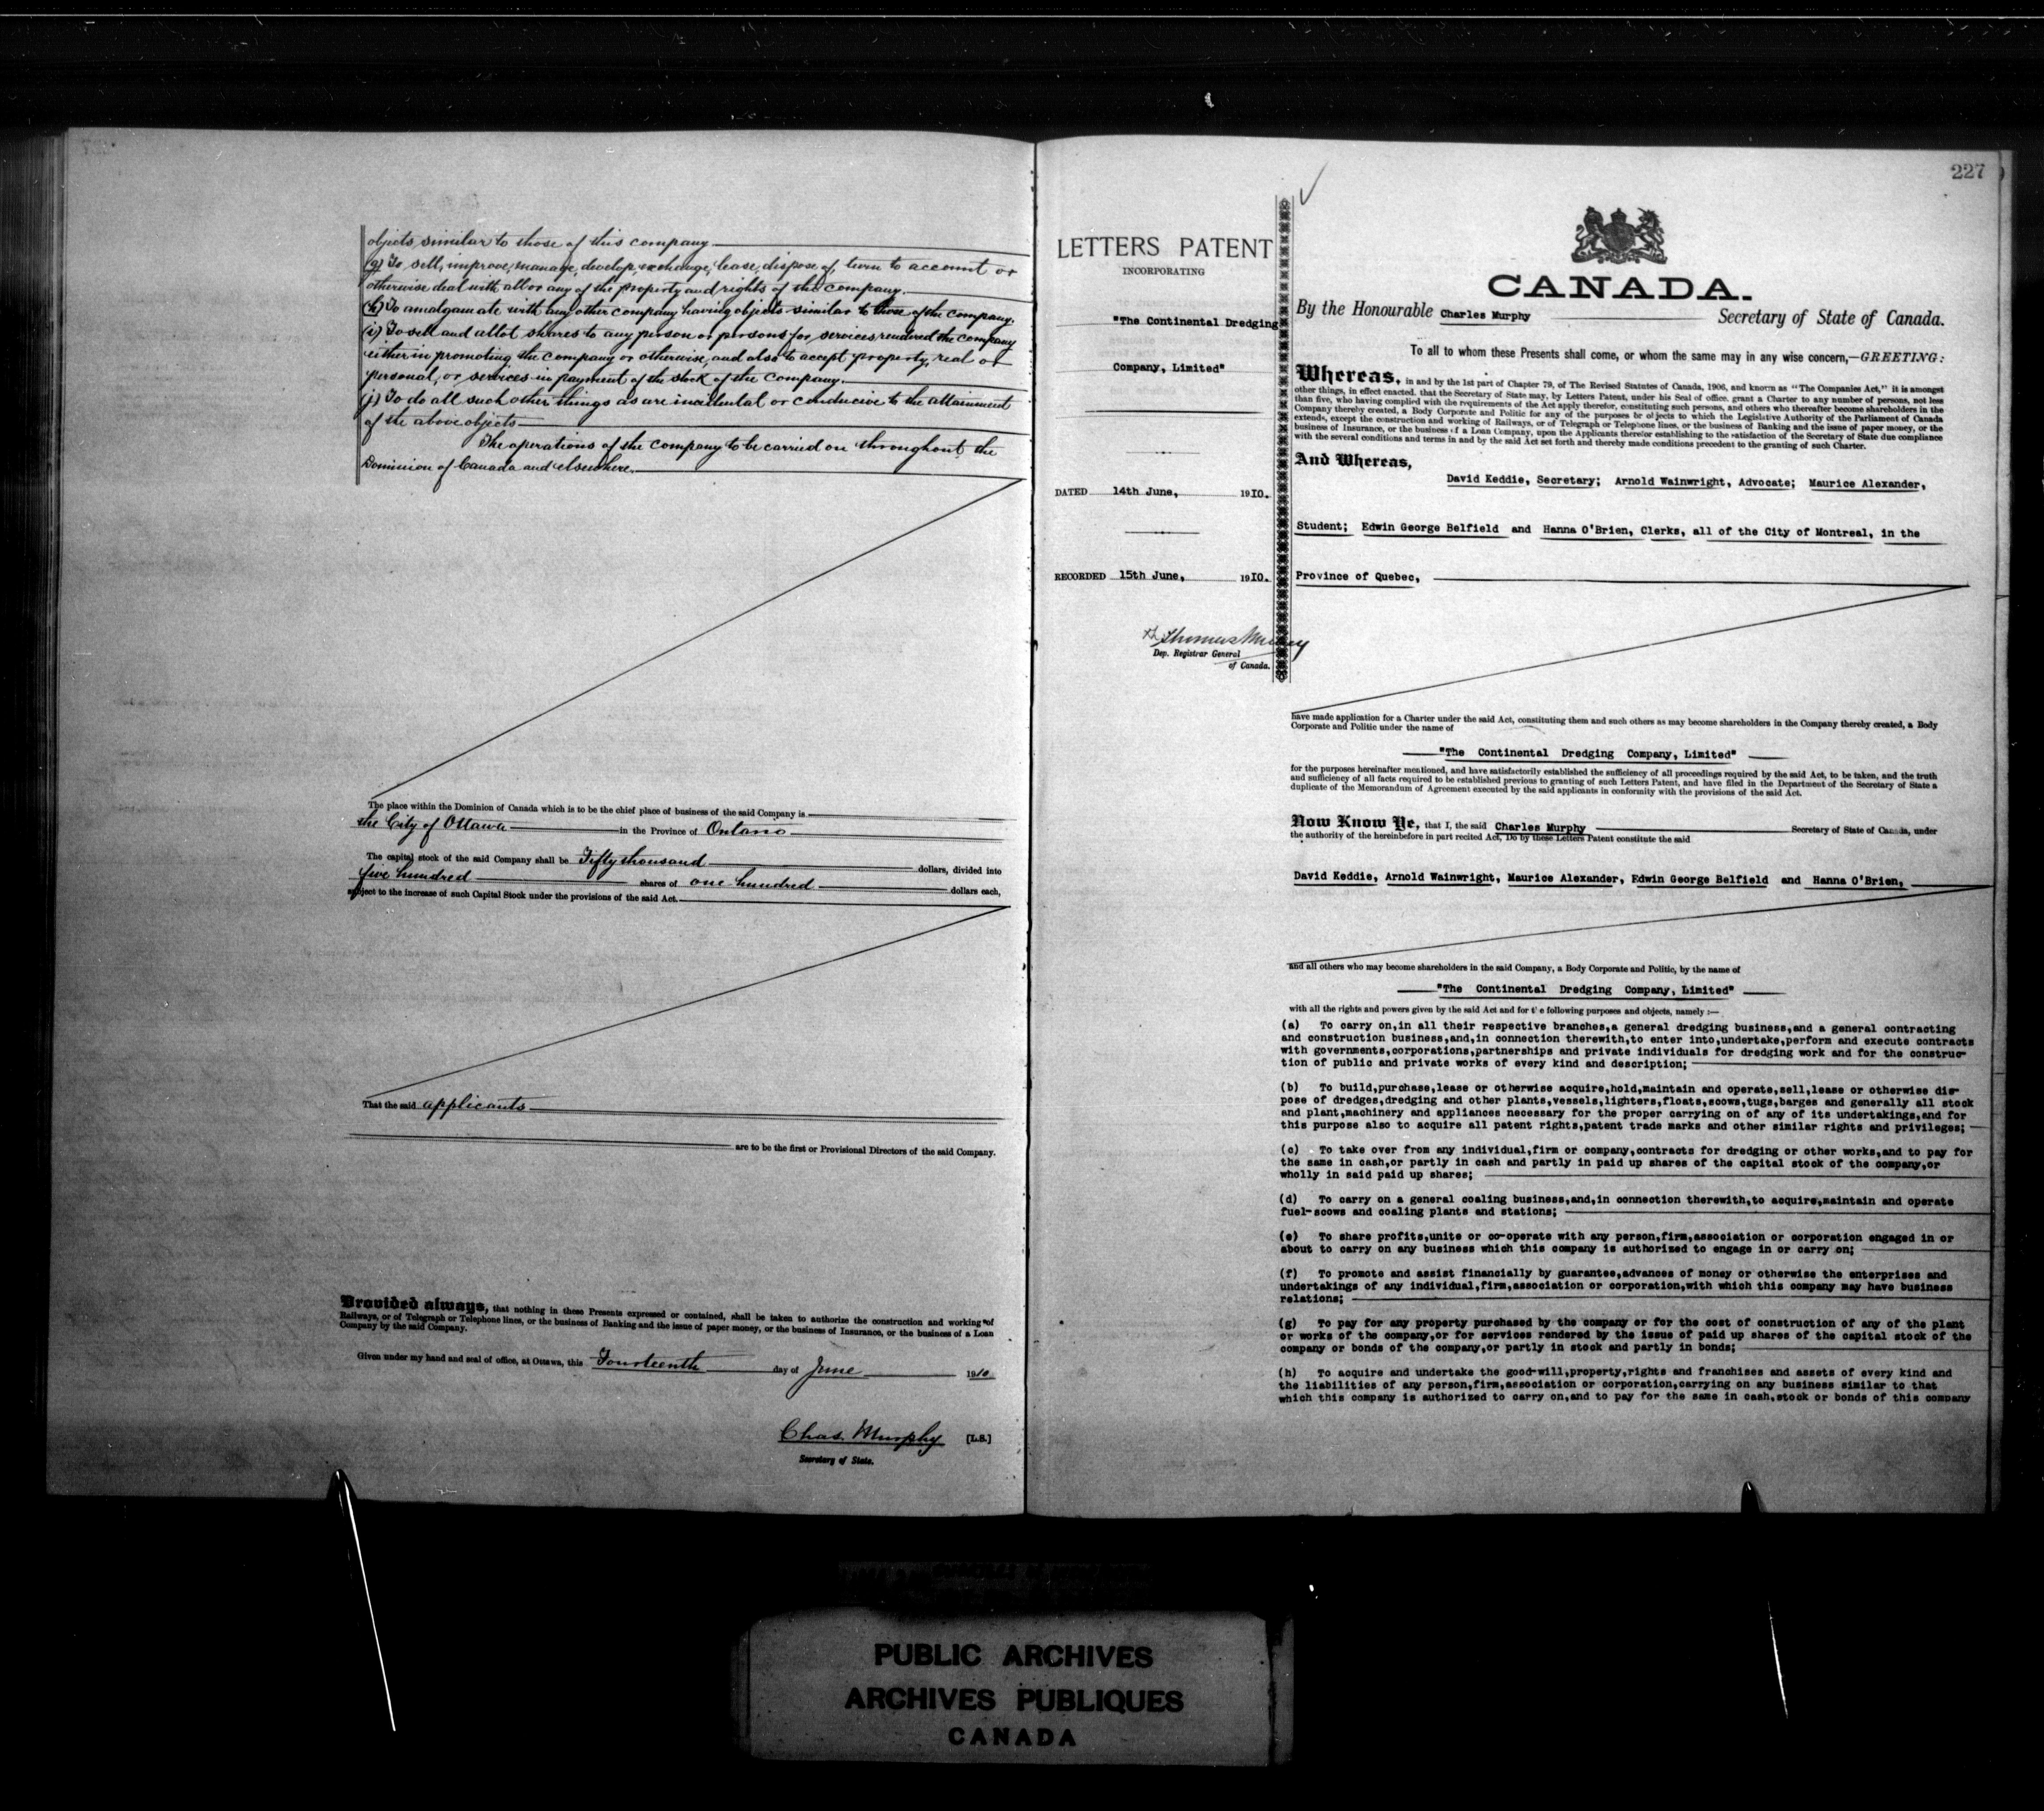 objects similar to those of this company
(g) To sell, improve, manage, develop, exchange, lease, dispose of, turn to account or
otherwise deal with all or any of the property and rights of the company.
(h) To amalgamate with any other company having objects similar to those of the company.
(i) To sell and allot shares to any person or persons for services rendered the company
either in promoting the company or otherwise, and also to accept property, real or
personal, or services in payment of the stock of the company.
(j) To do all such other things as are incidental or conducive to the attainment
of the above objects
The operations of the company to be carried on throughout the
Dominion of Canada and elsewhere.
The place within the Dominion of Canada which is to be the chief place of business of the said Company is
the City of Ottawa in the Province of Ontario
The capital stock of the said Company shall be Fifty thousand dollars, divided into
five hundred shares of one hundred dollars each,
subject to the increase of such Capital Stock under the provisions of the said Act.
That the said applicants
are to be the first or Provisional Directors of the said Company.
Provided always, that nothing in these Presents expressed or contained, shall be taken to authorize the construction and working of
Railways, or of Telegraph or Telephone lines, or the business of Banking and the issue of paper money, or the business of Insurance, or the business of a Loan
Company by the said Company.
Given under my hand and seal of office, at Ottawa, this Fourteenth day of June 1910
Chas. Murphy [L.S.]
Secretary of State.
227
LETTERS PATENT
INCORPORATING
"The Continental Dredging
Company, Limited"
DATED 14th June, 1910.
RECORDED 15th June, 1910.
Thomas
Dep. Registrar General
of Canada.
CANADA.
By the Honourable Charles Murphy Secretary of State of Canada.
To all to whom these Presents shall come, or whom the same may in any wise concern,—GREETING:
Whereas, in and by the 1st part of Chapter 79, of The Revised Statutes of Canada, 1906, and known as "The Companies Act," it is amongst
other things, in effect enacted, that the Secretary of State may, by Letters Patent, under his Seal of office, grant a Charter to any number of persons, not less
than five, who having complied with the requirements of the Act apply therefor, constituting such persons, and others who thereafter become shareholders in the
Company thereby created, a Body Corporate and Politic for any of the purposes or objects to which the Legislative Authority of the Parliament of Canada
extends, except the construction and working of Railways, or of Telegraph or Telephone lines, or the business of Banking and the issue of paper money, or the
business of Insurance, or the business of a Loan Company, upon the Applicants therefor establishing to the satisfaction of the Secretary of State due compliance
with the several conditions and terms in and by the said Act set forth and thereby made conditions precedent to the granting of such Charter.
And Whereas,
David Keddie, Secretary; Arnold Wainwright, Advocate; Maurice Alexander,
Student; Edwin George Belfield and Hanna O'Brien, Clerks, all of the City of Montreal, in the
Province of Quebec,
have made application for a Charter under the said Act, constituting them and such others as may become shareholders in the Company thereby created, a Body
Corporate and Politic under the name of
"The Continental Dredging Company, Limited"
for the purposes hereinafter mentioned, and have satisfactorily established the sufficiency of all proceedings required by the said Act, to be taken, and the truth
and sufficiency of all facts required to be established previous to granting of such Letters Patent, and have filed in the Department of the Secretary of State a
duplicate of the Memorandum of Agreement executed by the said applicants in conformity with the provisions of the said Act.
Now Know Ye, that I, the said Charles Murphy Secretary of State of Canada, under
the authority of the hereinbefore in part recited Act, Do by these Letters Patent constitute the said
David Keddie, Arnold Wainwright, Maurice Alexander, Edwin George Belfield and Hanna O'Brien,
and all others who may become shareholders in the said Company, a Body Corporate and Politic, by the name of
"The Continental Dredging Company, Limited"
with all the rights and powers given by the said Act and for t e following purposes and objects, namely :—
(a) To carry on,in all their respective branches,a general dredging business,and a general contracting
and construction business,and,in connection therewith,to enter into,undertake,perform and execute contracts
with governments,corporations,partnerships and private individuals for dredging work and for the construc-
tion of public and private works of every kind and description;
(b) To build,purchase,lease or otherwise acquire,hold,maintain and operate,sell,lease or otherwise dis-
pose of dredges,dredging and other plants,vessels,lighters,floats,scows,tugs,barges and generally all stock
and plant,machinery and appliances necessary for the proper carrying on of any of its undertakings,and for
this purpose also to acquire all patent rights,patent trade marks and other similar rights and privileges;
(c) To take over from any individual,firm or company,contracts for dredging or other works,and to pay for
the same in cash,or partly in cash and partly in paid up shares of the capital stock of the company,or
wholly in said paid up shares;
(d) To carry on a general coaling business,and,in connection therewith,to acquire,maintain and operate
fuel-scows and coaling plants and stations;
(e) To share profits,unite or co-operate with any person,firm,association or corporation engaged in or
about to carry on any business which this company is authorized to engage in or carry on;
(f) To promote and assist financially by guarantee,advances of money or otherwise the enterprises and
undertakings of any individual,firm,association or corporation,with which this company may have business
relations;
(g) To pay for any property purchased by the company or for the cost of construction of any of the plant
or works of the company,or for services rendered by the issue of paid up shares of the capital stock of the
company or bonds of the company,or partly in stock and partly in bonds;
(h) To acquire and undertake the good-will,property,rights and franchises and assets of every kind and
the liabilities of any person,firm,association or corporation,carrying on any business similar to that
which this company is authorized to carry on,and to pay for the same in cash,stock or bonds of this company
PUBLIC ARCHIVES
ARCHIVES PUBLIQUES
CANADA